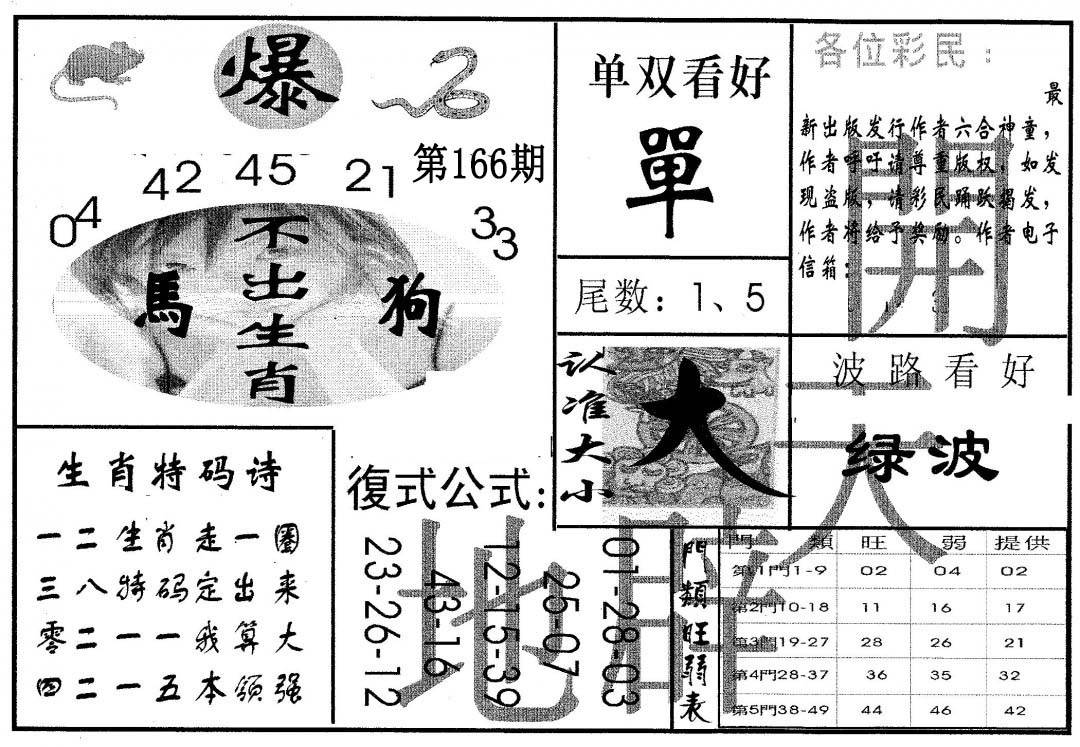 爆
第166期
04 42 45 21 33
不出生肖
馬
狗
单双看好
單
尾数：1、5
各位彩民：
最
新出版发行作者六合神童，
作者呼吁请尊重版权，如发
现盗版，请彩民踊跃揭发，
作者将给予奖励。作者电子
信箱：
认准大小
大
波路看好
绿波
生肖特码诗
一二生肖走一圈
三八特码定出来
零二一一我算大
四二一五本领强
復式公式：
23-26-12
43-16
12-15-39
25-07
01-28-03
門類旺弱表
門類 旺 弱 提供
第1門1-9 02 04 02
第2門10-18 11 16 17
第3門19-27 28 26 21
第4門28-37 36 35 32
第5門38-49 44 46 42
開
天
地